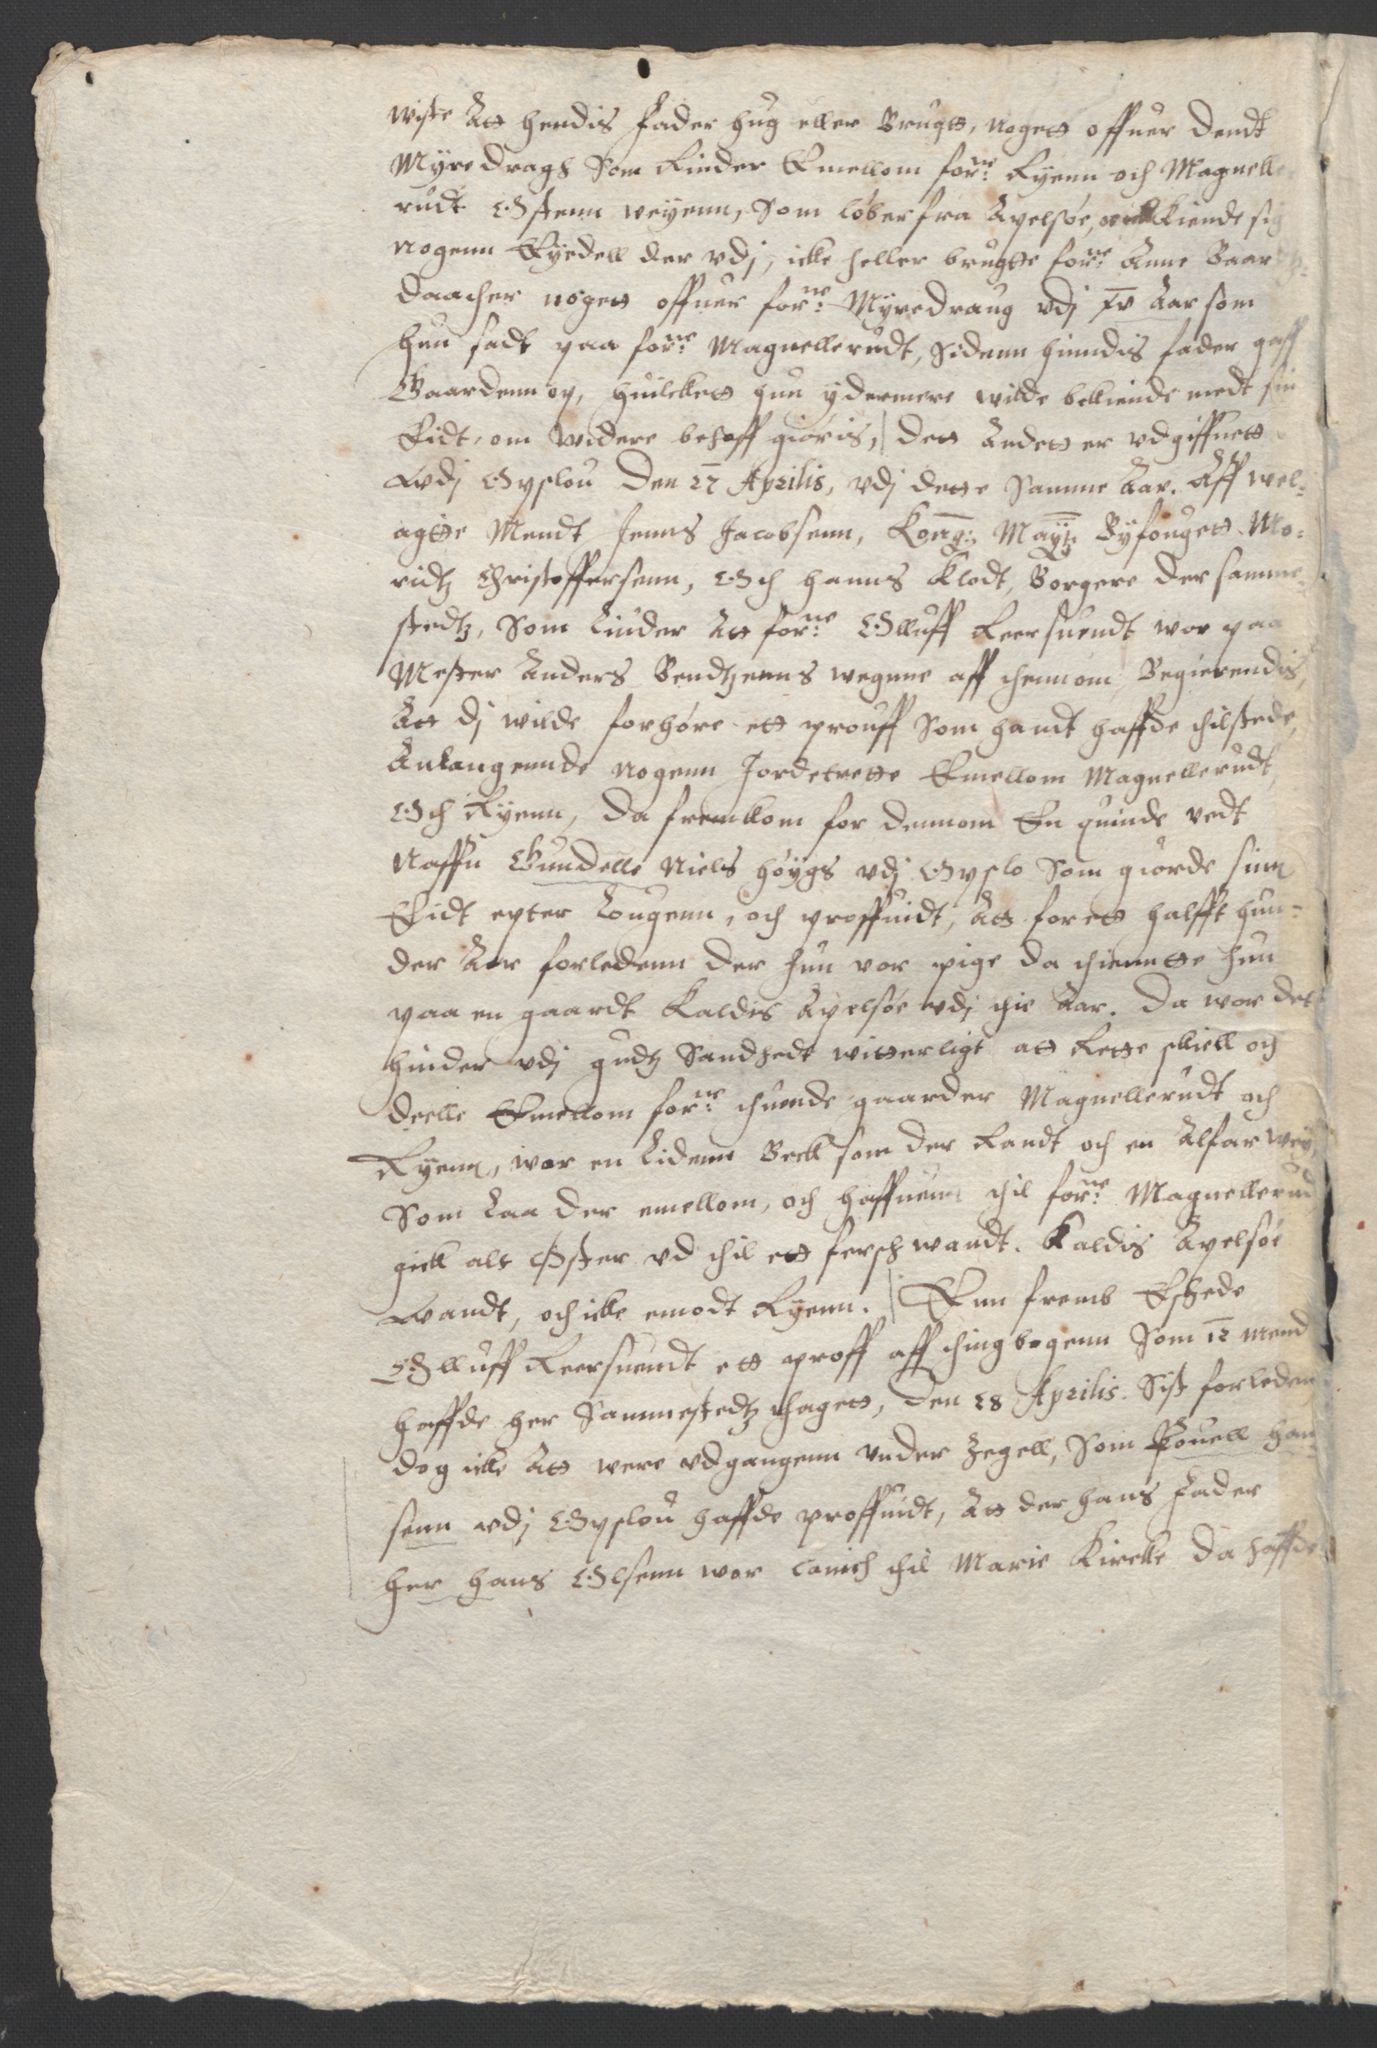 wiste Att hendis fader hug eller Brugtt, nogett offuer dendt
Myredragh Som Rinder Emellom forne: Ryenn och Magnelle
rudt Østenn weyenn, Som løber fra Apelsøe, Kiendt sig
nogenn Eyedell der vdj, icke heller brugtte forne: Anne Baar
daacher nogett offuer forne: Myredraug vdj xv Aar som
hun sadt paa forne: Magnellerudt, Sidenn hindis fader gaff
Gaardenn op, huilckett hun ydermere wilde bekiende medt sin
Eidt, om widere behoff giøris, Dett Andett er vdgiffuett
wdj Opslou Den 27 Aprilis, vdj dette Samme Aar. Aff wel:
agtte Mendt Jenns Jacobsenn, Kong: Maytz Byfougett Mo:
ridtz Christoffersenn, Och Hanns Klodt, Borgere der samme
stedtz, Som Liuder Att forne: Olluff Reersuendt wor paa
Mester Anders Bendtzenns wegnne aff thennom Begierendis,
Att dj wilde forhøre ett prouff Som handt haffde thilstede,
Anlangennde nogenn Jordetrette Emellom Magnellerudt
Och Ryenn, Da fremkom for dennom En quinde vedt
Naffn Gundelle Niels Høygs vdj Opslo Som giorde sinn
Eidt epter Lougenn, och proffuidt, Att for ett halfft hun-
der Aar forledenn der hun vor pige da thienntte hun
paa en gaardt Kaldis Apelsøe vdj thie Aar. Da wor det
hinder vdj gudtz Sandhedt witterligt att Rette skiell och
deelle Emellom forne: thuende gaarder Magnellerudt och
Ryenn, war en Lidenn Beck som der Randt och en Alfar wey,
Som Laa der emellom, och haffuenn thil forne: Magnellerud
gick alt Øster vd thil ett fersch wandt. Kaldis Apelsøe
wandt, och icke emodt Ryenn. Enn fremb Eskede
Olluff Reersuendt ett proff aff thingbogenn Som 12 mend
haffde her Sammestedtz thagett, Den 28 Aprilis. Sist forledenn
dog icke Att were vdgangenn vnder Zegell, Som Pouell Han
senn vdj Opslou haffde proffuidt, Att der hans Fader
her Hans Olsenn wor Canich thil Marie Kircke Da haffde